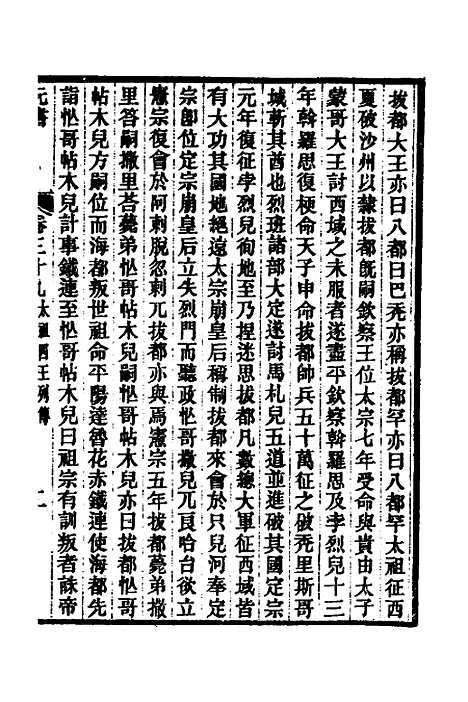 拔都大王亦曰八都曰巴禿亦稱拔都罕亦曰八都罕太祖征西
夏破沙州以隸拔都旣嗣欽察王位太宗七年受命與貴由太子
蒙哥大王討西域之未服者遂盡平欽察斡羅思及孛烈兒十三
年斡羅思復梗命天子申命拔都帥兵五十萬征之破禿里斯哥
城斬其酋也烈班諸部大定遂討馬札兒五道並進破其國定宗
元年復征孛烈兒徇地至乃捏迷思拔都凡數總大軍征西域皆
有大功其國地絕遠太宗崩皇后稱制拔都來會於只兒河奉定
宗卽位定宗崩皇后立失烈門而聽政忯哥撒兒兀良哈台欲立
憲宗復會於阿剌脫忽剌兀拔都亦與焉憲宗五年拔都薨弟撒
里答嗣撒里荅薨弟忯哥帖木兒嗣忯哥帖木兒亦曰拔都忯哥
帖木兒方嗣位而海都叛世祖命平陽達魯花赤鐵連使海都先
詣忯哥帖木兒計事鐵連至忯哥帖木兒曰祖宗有訓叛者誅帝
元書 卷三十九太祖四王列傳 二